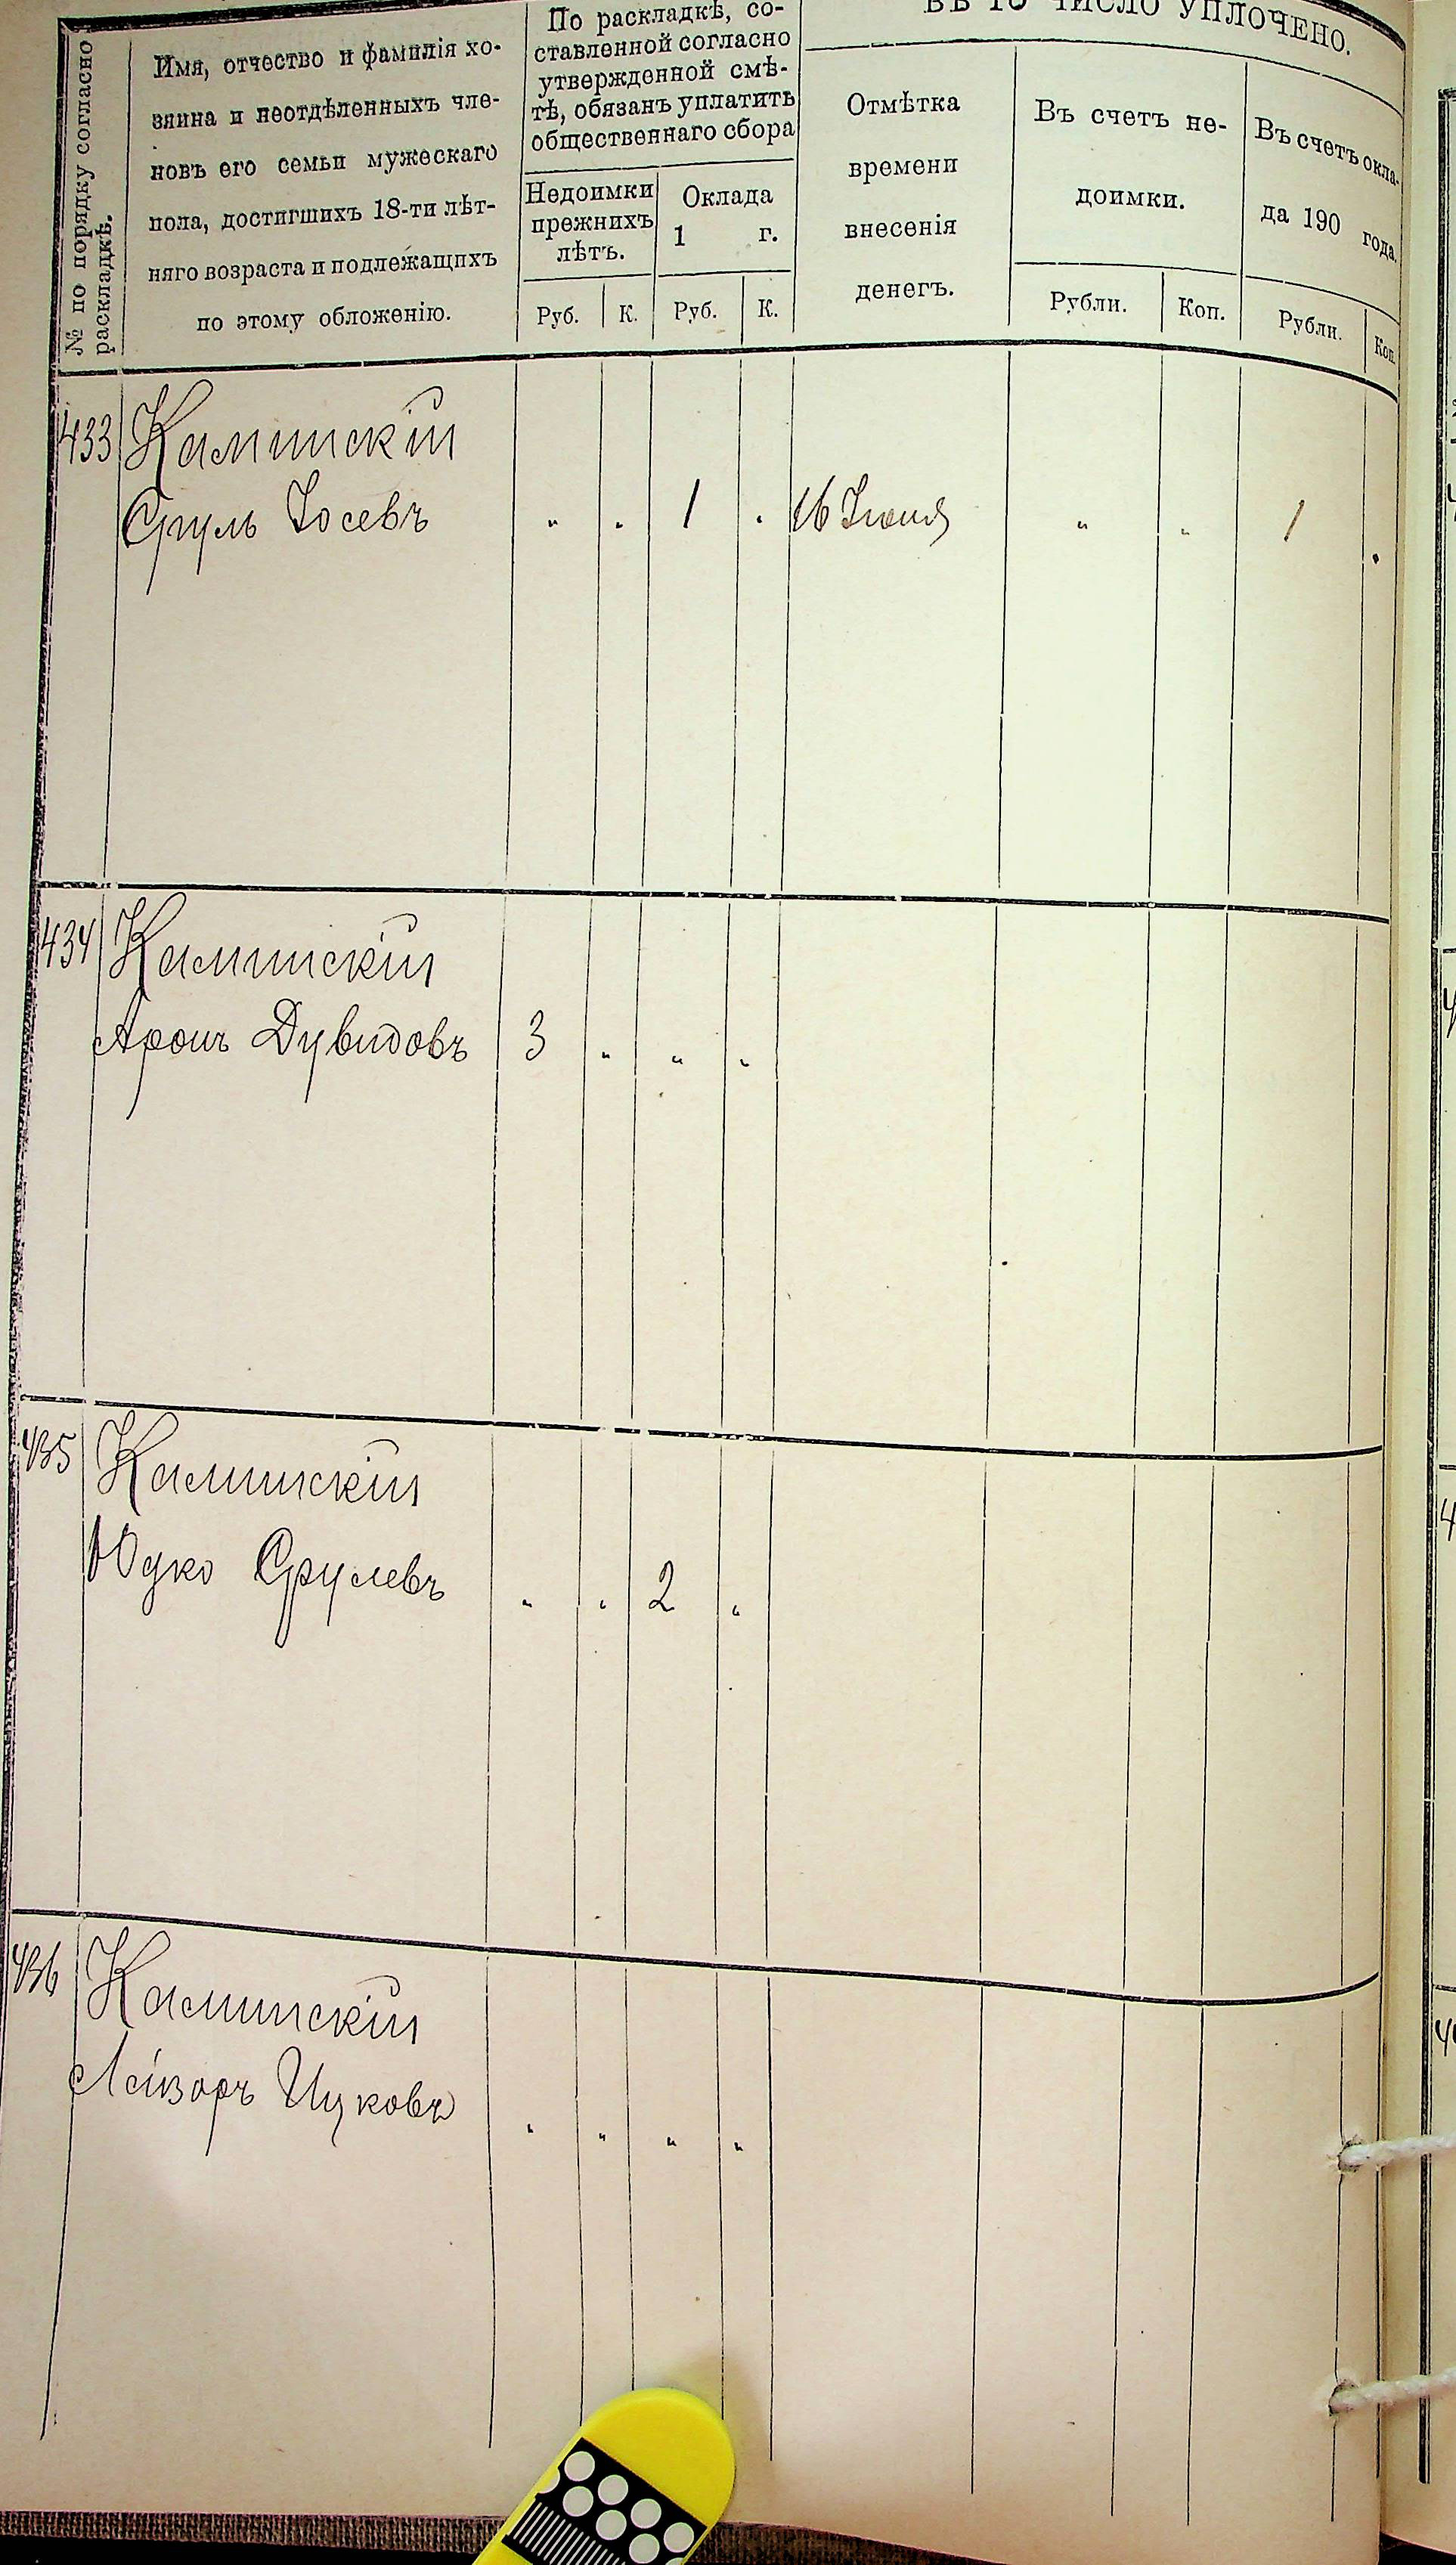 № по порядку согласно
раскладкѣ.
Имя, отчество и фамилія хо-
зяина и неотдѣленныхъ чле-
новъ его семьи мужескаго
пола, достигшихъ 18-ти лѣт-
няго возраста и подлежащихъ
по этому обложенію.
По раскладкѣ, со-
ставленной согласно
утвержденной смѣ-
тѣ, обязанъ уплатить
общественнаго сбора
Недоимки
прежнихъ
лѣтъ.
Руб. К.
Оклада
1 г.
Руб. К.
ВЪ ТО ЧИСЛО УПЛОЧЕНО.
Отмѣтка
времени
внесенія
денегъ.
Въ счетъ не-
доимки.
Рубли. Коп.
Въ счетъ окла-
да 190 года.
Рубли. Коп.
433 Каминскій
Сруль Іосевъ „ „ 1 „ 16 Іюня „ „ 1 „
434 Каминскій
Аронъ Дувидовъ 3 „ „ „
435 Каминскій
Юдко Срулевъ „ „ 2 „
436 Каминскій
Лейзоръ Ицковъ „ „ „ „